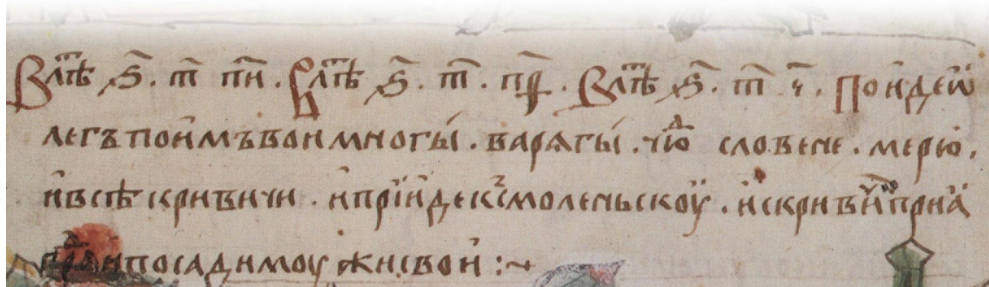 В лѣт҇ ѕ҃. т҃ п҃и. В лѣт҇ ѕ҃. т҃. п҃ѳ. В лѣт҇ ѕ҃. т҃ ч҃. Поиде ѡ
легъ поимъ вои многы. варягы. чюд словене. мерю.
и всѣ кривичи. и прїиде к смоленьскоу. и с кривичи прия
град и посади моужи свои :~